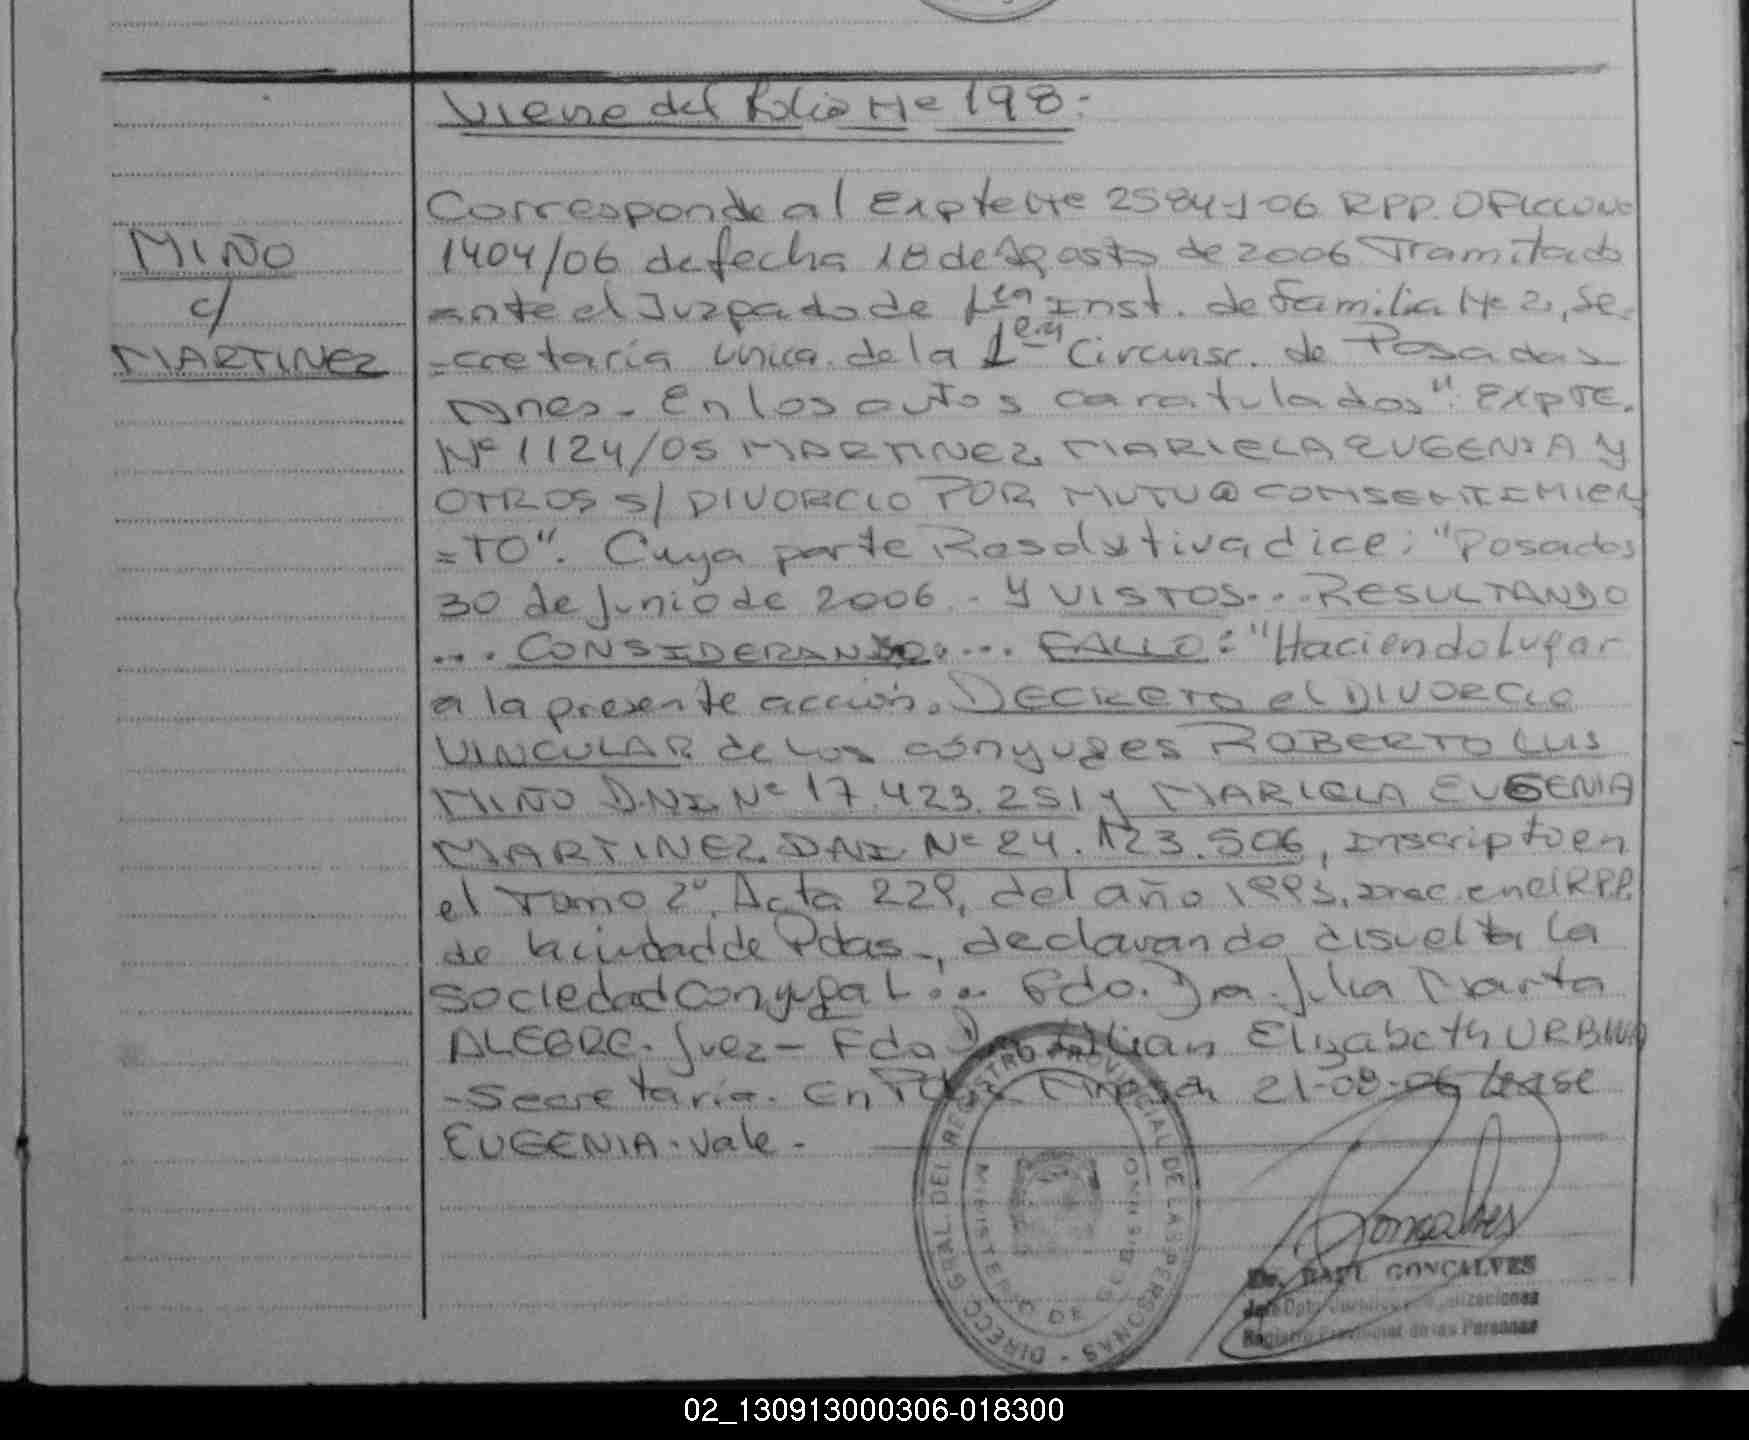 Viene del folio Nº 198:
MIÑO
c/
MARTINEZ
Corresponde al Expte Nº 2584-J-06 RPP. OFICIO Nº
1404/06 de fecha 18 de Agosto de 2006 Tramitado
ante el Juzgado de 1era Inst. de Familia Nº 2, Se=
=cretaría única de la 1era Circunsc. de Posadas
Mnes. En los autos caratulados": EXPTE.
Nº 1124/05 MARTINEZ MARIELA EUGENIA Y
OTROS S/ DIVORCIO POR MUTUO CONSENTIMIEN
=TO". Cuya parte Resolutiva dice: "Posadas
30 de junio de 2006. - Y VISTOS... RESULTANDO
... CONSIDERANDO.... FALLO: "Haciendo lugar
a la presente acción. DECRETO el DIVORCIO
VINCULAR de los cónyuges ROBERTO LUIS
MIÑO D.N.I. Nº 17.423.251 y MARIELA EUGENIA
MARTINEZ DNI Nº 24.123.506, inscripto en
el Tomo 2º, Acta 229, del año 1993, insc. en el RPP.
de la ciudad de Pdas-, declarando disuelta la
sociedad conyugal... Fdo. Dra. Julia Marta
ALEGRE. Juez - Fdo Dra Lilian Elizabeth URBINA
-Secretaria. En Pdas. 21-09-06 Léase
EUGENIA. Vale. -
DIRECC. GRAL. DEL REGISTRO PROVINCIAL DE LAS PERSONAS -
MINISTERIO DE GOBIERNO
Goncalves
Dr. RAUL GONCALVES
Jefe Dpto
Registro Provincial de las Personas
02_130913000306-018300